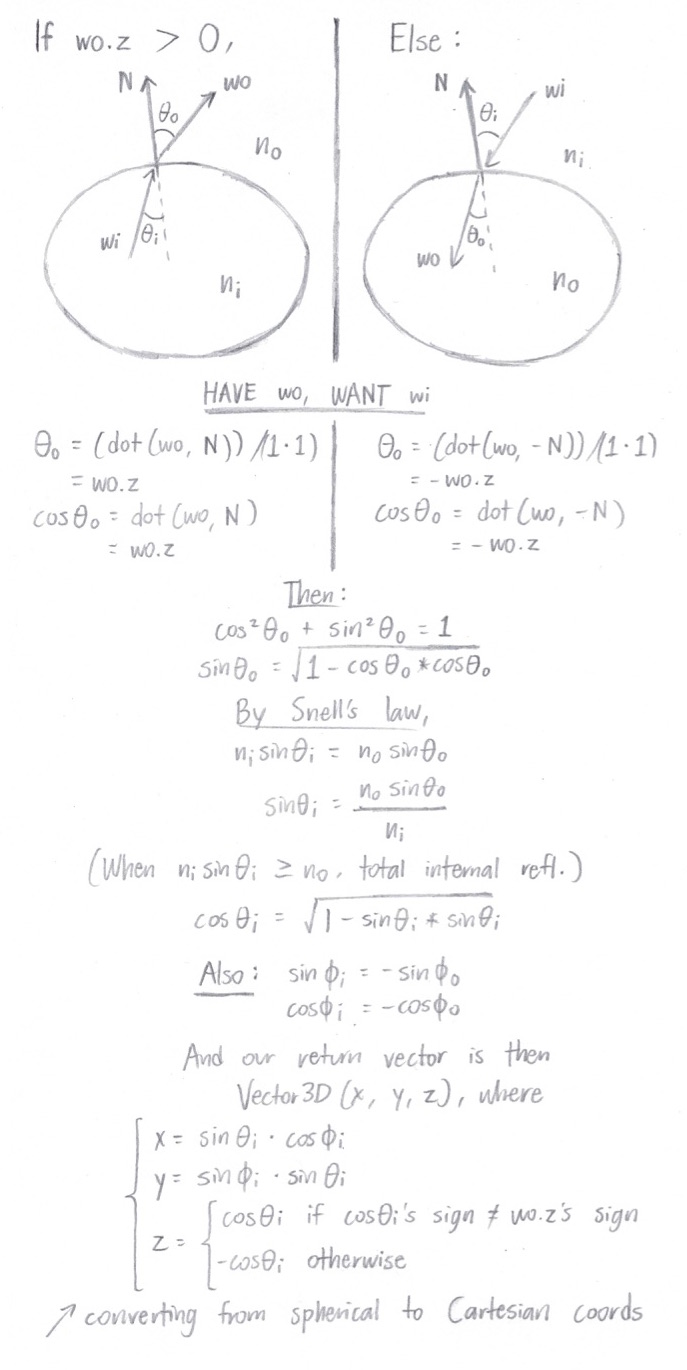 If wo.z > 0,
N
wo
θo
no
wi
θi
ni
Else :
N
wi
θi
ni
θo
wo
no
HAVE wo, WANT wi
θo = (dot(wo, N))/(1·1)
= wo.z
cosθo = dot(wo, N)
= wo.z
θo = (dot(wo, -N))/(1·1)
= -wo.z
cosθo = dot(wo, -N)
= -wo.z
Then:
cos²θo + sin²θo = 1
sinθo = √1 - cosθo*cosθo
By Snell's law,
ni sinθi = no sinθo
sinθi = no sinθo
ni
(When ni sinθi ≥ no, total internal refl.)
cosθi = √1 - sinθi * sinθi
Also: sin ϕi = -sin ϕo
cosϕi = -cosϕo
And our return vector is then
Vector3D (x, y, z), where
x = sinθi · cosϕi
y = sinϕi · sinθi
z = { cosθi if cosθi's sign ≠ wo.z's sign
-cosθi otherwise
↗ converting from spherical to Cartesian coords